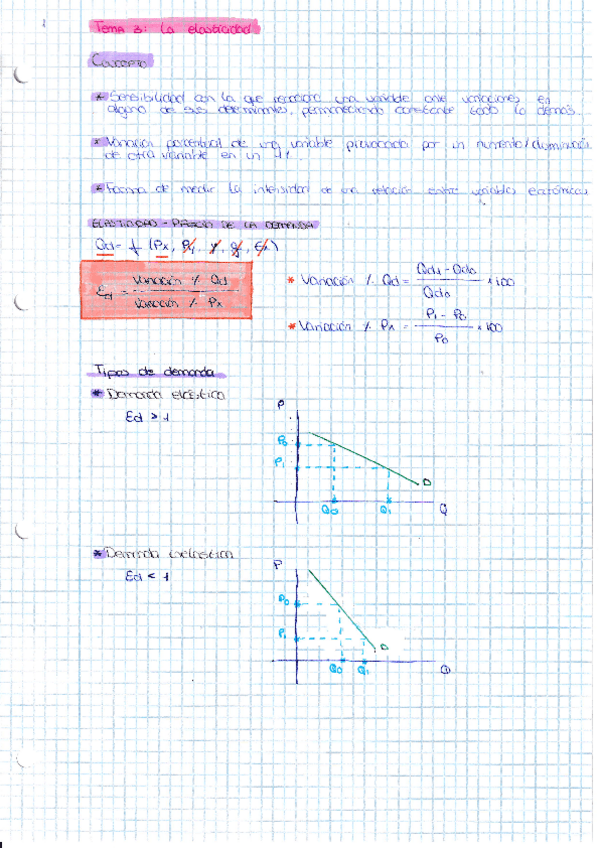 Tema 3: La elasticidad
Concepto
* Sensibilidad con la que reacciona una variable ante variaciones en
alguno de sus determinantes, permaneciendo constante todo lo demás.
* Variación porcentual de una variable provocada por un aumento/disminución
de otra variable en un 1%.
* Forma de medir la intensidad de una relación entre variables económicas
ELASTICIDAD - PRECIO DE LA DEMANDA
Qd = f (Px, Pj, y, g, Ex)
Ed = Variación % Qd / Variación % Px
* Variación % Qd = Qd1 - Qd0 / Qd0 × 100
* Variación % Px = P1 - P0 / P0 × 100
Tipos de demanda
* Demanda elástica
Ed > 1
P
P0
P1
D
Q0 Q1 Q
* Demanda inelástica
Ed < 1
P
P0
P1
D
Q0 Q1 Q